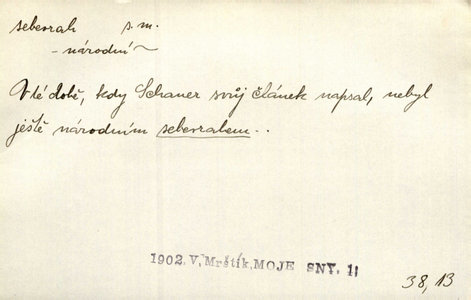 sebevrah s. m.
- národní ~
V té době, kdy Schauer svůj článek napsal, nebyl
ještě národním sebevrahem..
1902. V. Mrštík, MOJE SNY. 1!
38, 13